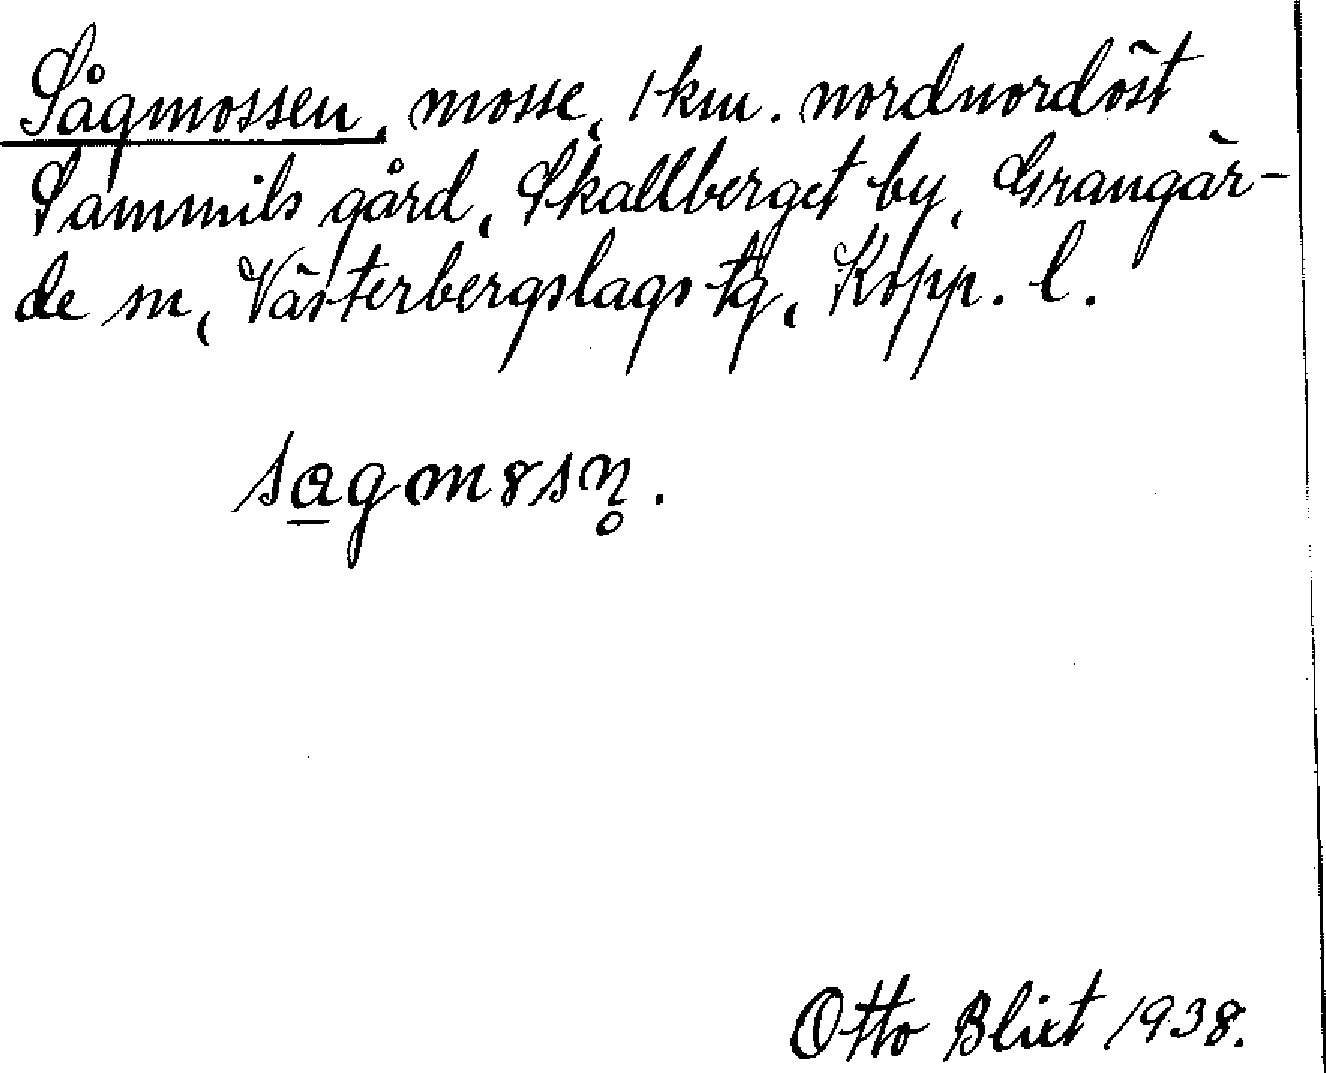 Sågmossen, mosse, 1 km. nordnordöst
Sammils gård, Skallberget by, Grangär-
de sn, Västerbergslags tg, Kopp. l.
sagm8sn̥.
Otto Blixt 1938.